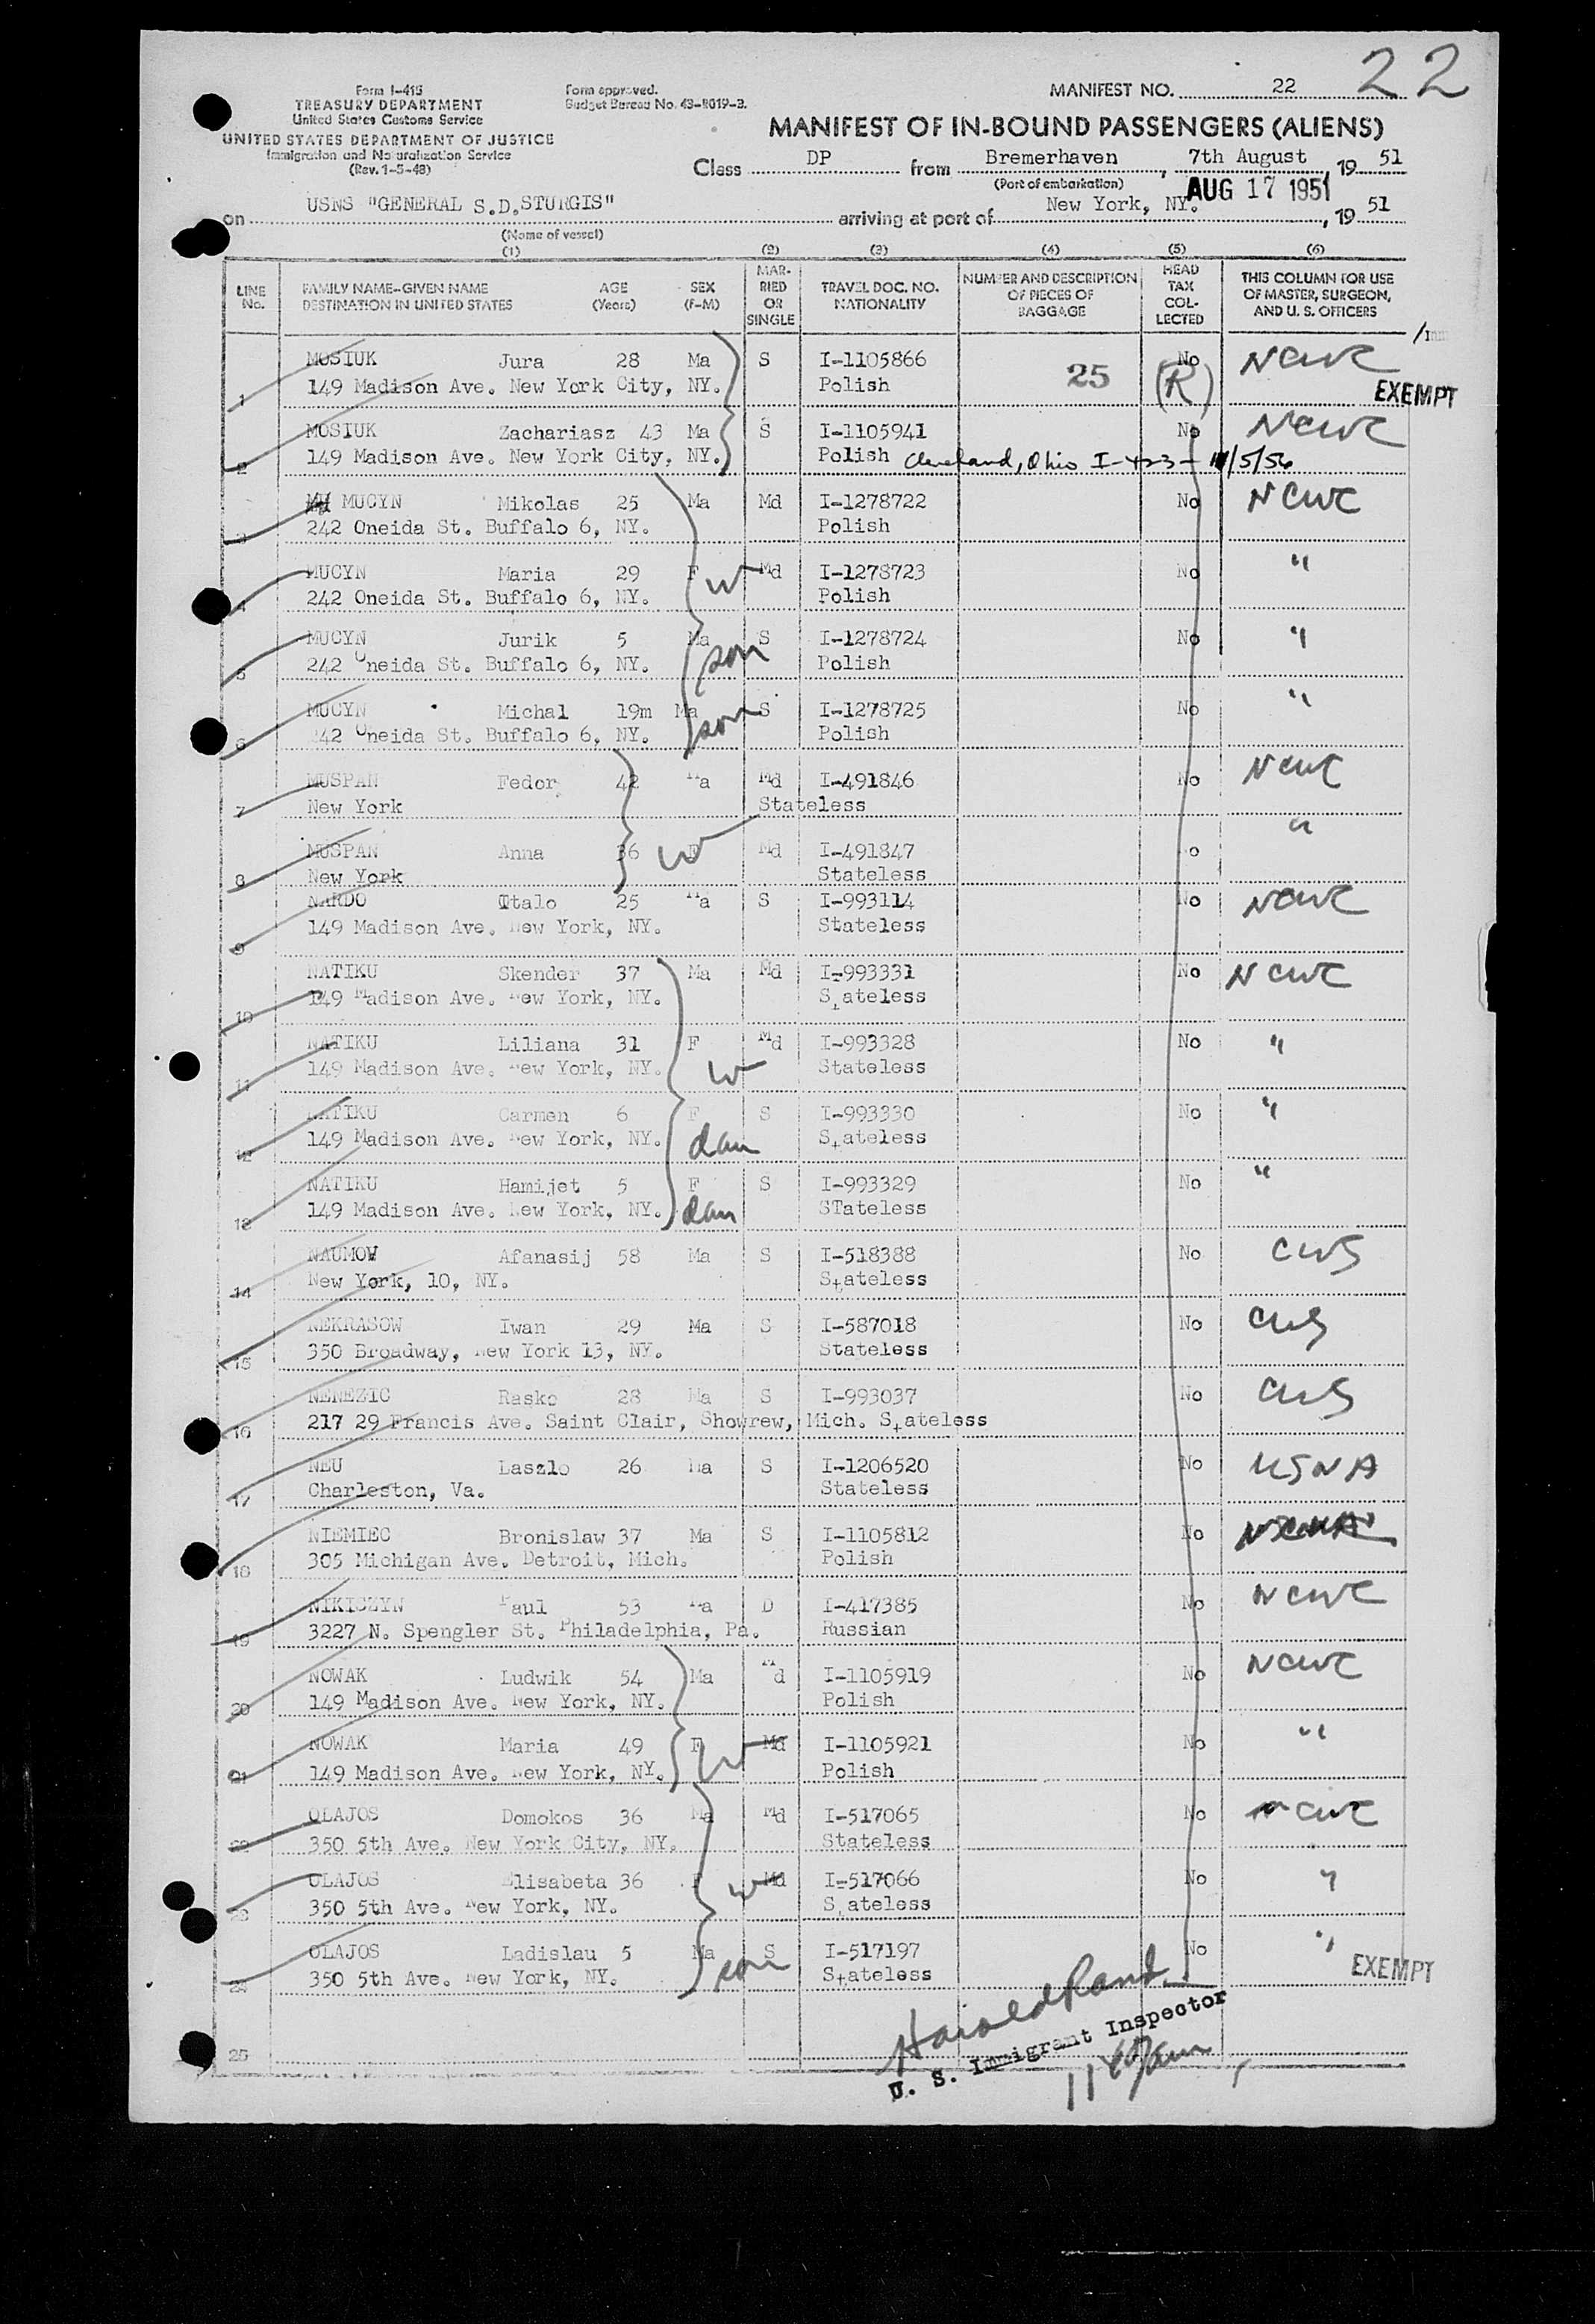 22
Form I-415
TREASURY DEPARTMENT
United States Customs Service
UNITED STATES DEPARTMENT OF JUSTICE
Immigration and Naturalization Service
(Rev. 1-5-48)
Form approved.
Budget Bureau No. 43-R019-3.
MANIFEST NO. 22
MANIFEST OF IN-BOUND PASSENGERS (ALIENS)
Class DP from Bremerhaven, 7th August, 19 51
(Port of embarkation)
AUG 17 1951
on USNS "GENERAL S.D.STURGIS" arriving at port of New York, NY., 19 51
(Name of vessel)
(1) (2) (3) (4) (5) (6)
LINE No.
FAMILY NAME-GIVEN NAME DESTINATION IN UNITED STATES
AGE (Years)
SEX (F-M)
MAR-RIED OR SINGLE
TRAVEL DOC. NO. NATIONALITY
NUMBER AND DESCRIPTION OF PIECES OF BAGGAGE
HEAD TAX COL-LECTED
THIS COLUMN FOR USE OF MASTER, SURGEON, AND U. S. OFFICERS
1 MOSIUK Jura 28 Ma S I-1105866 25 No (R) NCWC
149 Madison Ave. New York City, NY. Polish EXEMPT
2 MOSIUK Zachariasz 43 Ma S I-1105941 No NCWC
149 Madison Ave. New York City, NY. Polish Cleveland, Ohio I-423- /5/56
3 MUCYN Mikolas 25 Ma Md I-1278722 No NCWC
242 Oneida St. Buffalo 6, NY. Polish
4 MUCYN Maria 29 F W Md I-1278723 No "
242 Oneida St. Buffalo 6, NY. Polish
5 MUCYN Jurik 5 Ma son S I-1278724 No "
242 Oneida St. Buffalo 6, NY. Polish
6 MUCYN Michal 19m Ma son S I-1278725 No "
242 Oneida St. Buffalo 6, NY. Polish
7 MUSPAN Fedor 42 Ma Md I-491846 No NCWC
New York Stateless
8 MUSPAN Anna 36 F W Md I-491847 No "
New York Stateless
9 NARDO Otalo 25 Ma S I-993114 No NCWC
149 Madison Ave. New York, NY. Stateless
10 NATIKU Skender 37 Ma Md I-993331 No NCWC
149 Madison Ave. New York, NY. Stateless
11 NATIKU Liliana 31 F W Md I-993328 No "
149 Madison Ave. New York, NY. Stateless
12 NATIKU Carmen 6 F dau S I-993330 No "
149 Madison Ave. New York, NY. Stateless
13 NATIKU Hamijet 5 F dau S I-993329 No "
149 Madison Ave. New York, NY. STateless
14 NAUMOV Afanasij 58 Ma S I-518388 No CWS
New York, 10, NY. Stateless
15 NEKRASOW Iwan 29 Ma S I-587018 No CWS
350 Broadway, New York 13, NY. Stateless
16 NENEZIC Rasko 28 Ma S I-993037 No CWS
217 29 Francis Ave. Saint Clair, Showrew, Mich. Stateless
17 NEU Laszlo 26 Ma S I-1206520 No USNA
Charleston, Va. Stateless
18 NIEMIEC Bronislaw 37 Ma S I-1105812 No
305 Michigan Ave. Detroit, Mich. Polish
19 NIKICZYN Paul 53 Ma D I-417385 No NCWC
3227 N. Spengler St. Philadelphia, Pa. Russian
20 NOWAK Ludwik 54 Ma Md I-1105919 No NCWC
149 Madison Ave. New York, NY. Polish
21 NOWAK Maria 49 F W Md I-1105921 No "
149 Madison Ave. New York, NY. Polish
22 OLAJOS Domokos 36 Ma Md I-517065 No NCWC
350 5th Ave. New York City, NY. Stateless
23 OLAJOS Elisabeta 36 F W Md I-517066 No "
350 5th Ave. New York, NY. Stateless
24 OLAJOS Ladislau 5 Ma son S I-517197 No "
350 5th Ave. New York, NY. Stateless EXEMPT
25
Harold Rand
U. S. Immigrant Inspector